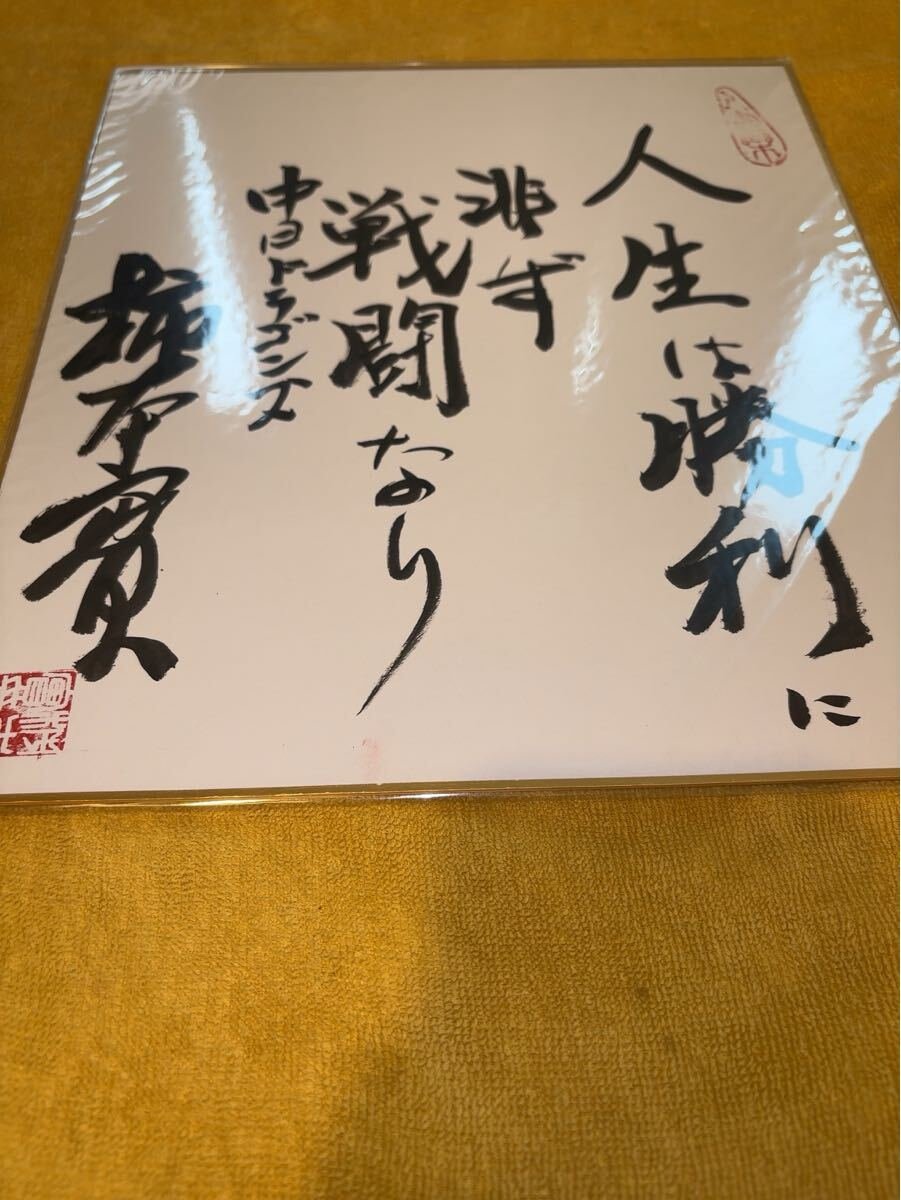 人生は勝利に
非ず
戦闘なり
中日ドラゴンズ
柿本實